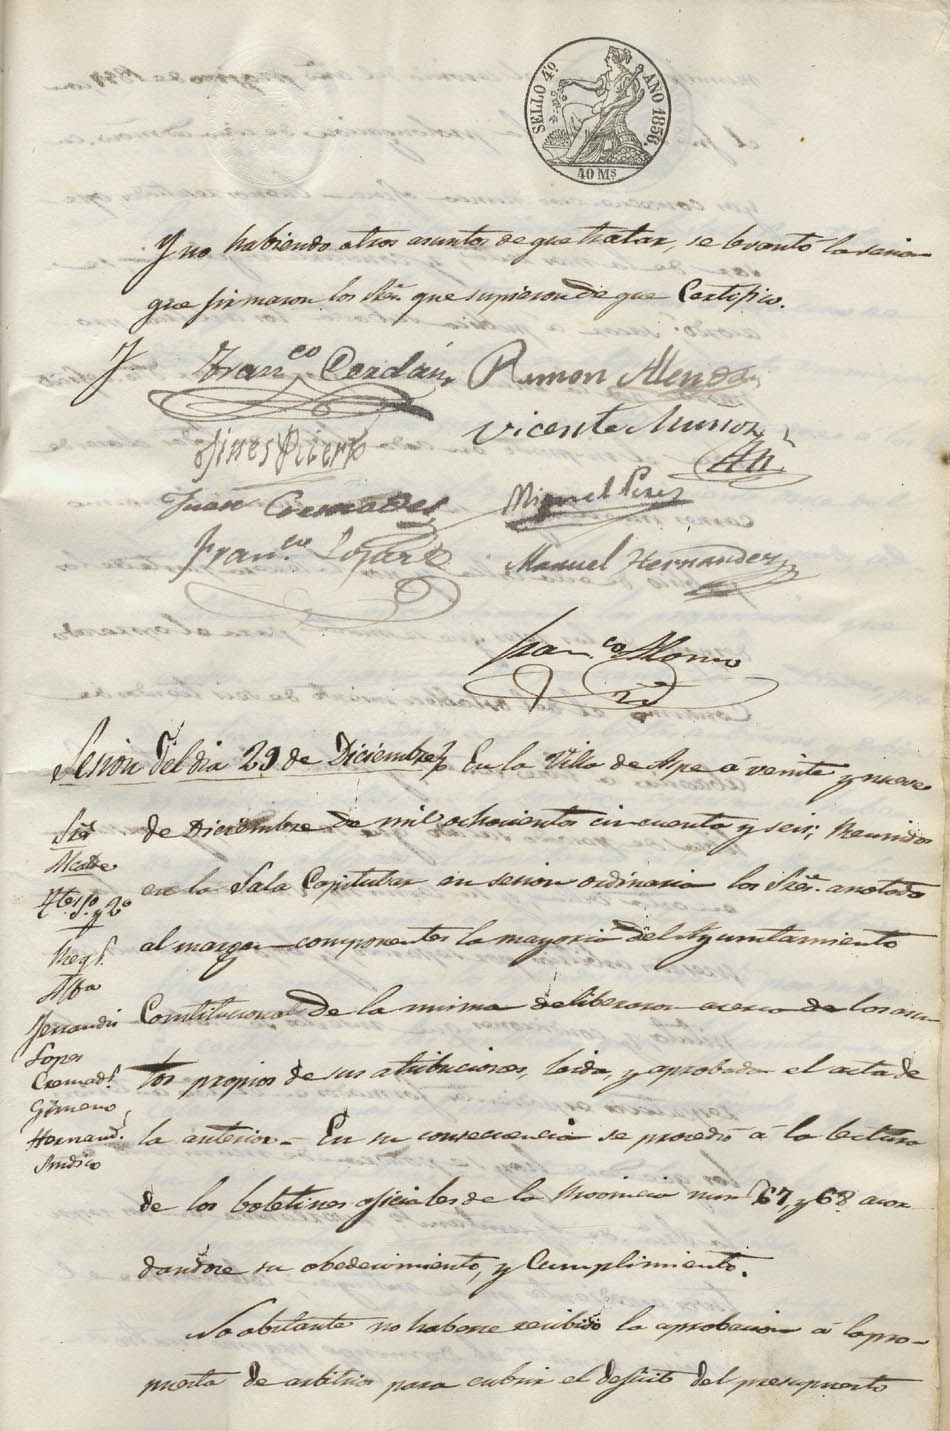 SELLO 4º AÑO 1856.
40 Ms
Y no habiendo otros asuntos de que tratar, se levantó la sesion
que firmaron los Sres. que supieron de que Certifico.
Franco Cerdán Ramon Alenda
Vicente Muñoz
Gines Rivera
An.
Juan Cremades Miguel Perez
Franco Lopez Manuel Hernandez
Franco Alonso
Sesion del dia 29 de Diciembre En la Villa de Aspe á veinte y nueve
de Diciembre de mil ochocientos cincuenta y seis; Reunidos
en la Sala Capitular en sesion ordinaria los Sres. anotado
al margen componentes la mayoria del Ayuntamiento
Constitucional de la misma deliberaron acerca de los asun
tos propios de sus atribuciones, leida, y aprobada el acta de
la anterior. En su consecuencia se procedió á la lectura
de los boletines oficiales de la Provincia num 67, y 68 acor
dandose su obedecimiento, y Cumplimiento.
No obstante no haberse recibido la aprobacion á la pro-
puesta de arbitrios para cubrir el deficit del presupuesto
Sres
Alcalde
Ttes. 1º y 2º
Regs.
Ferrandis
Lopez
Cremads.
Gimeno
Hernand.
Sindico